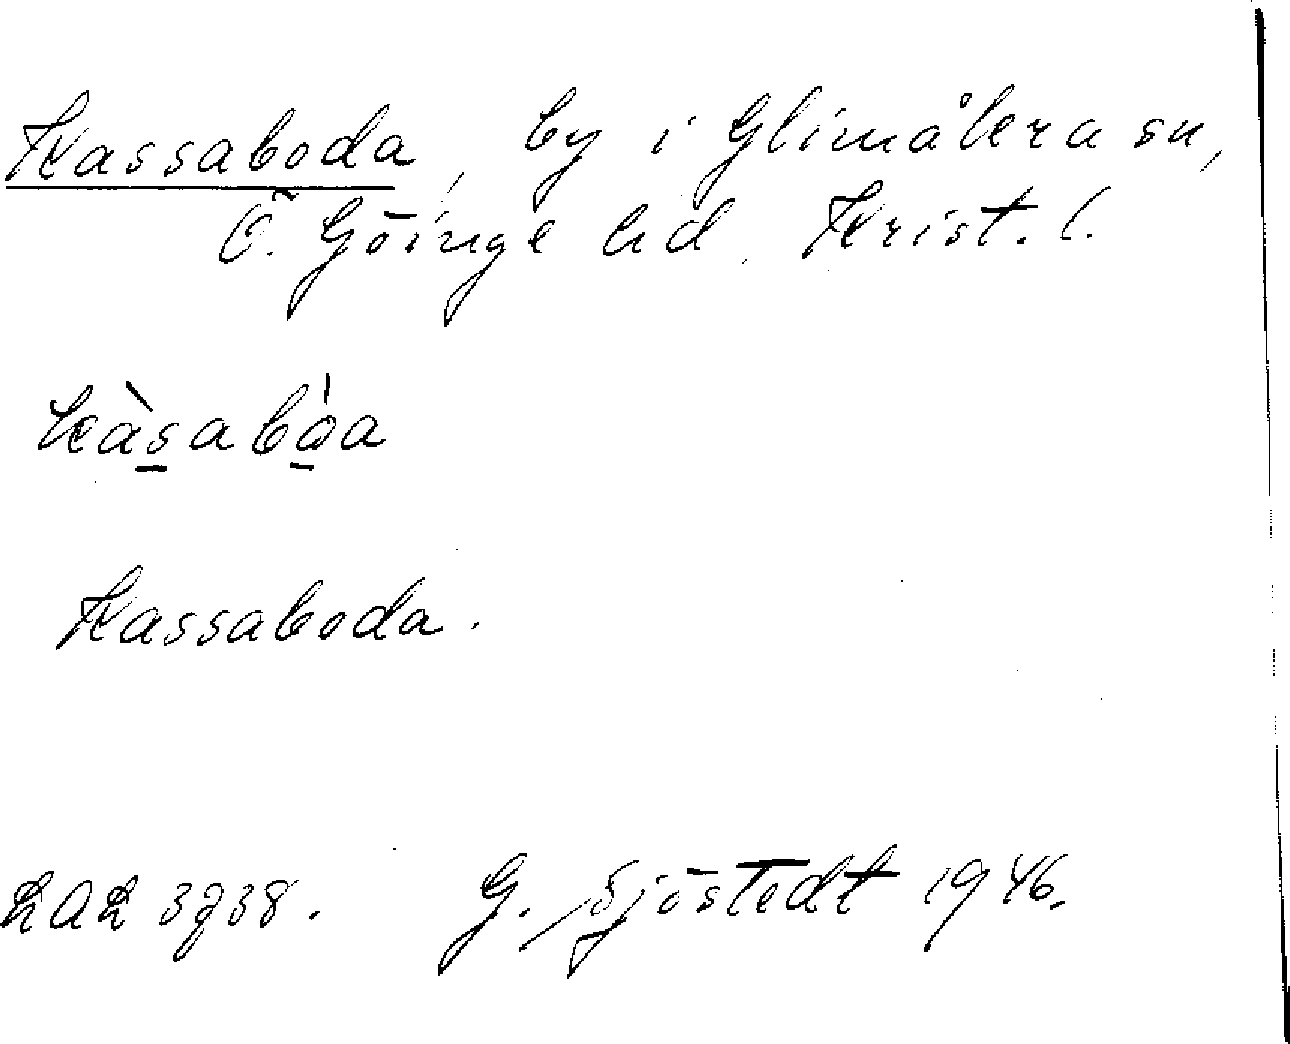 Kassaboda, by i Glimåkra sn,
Ö. Göinge hd, Krist. l.
kàsabòa
Kassaboda.
LAL 3738. G. Sjöstedt 1946.